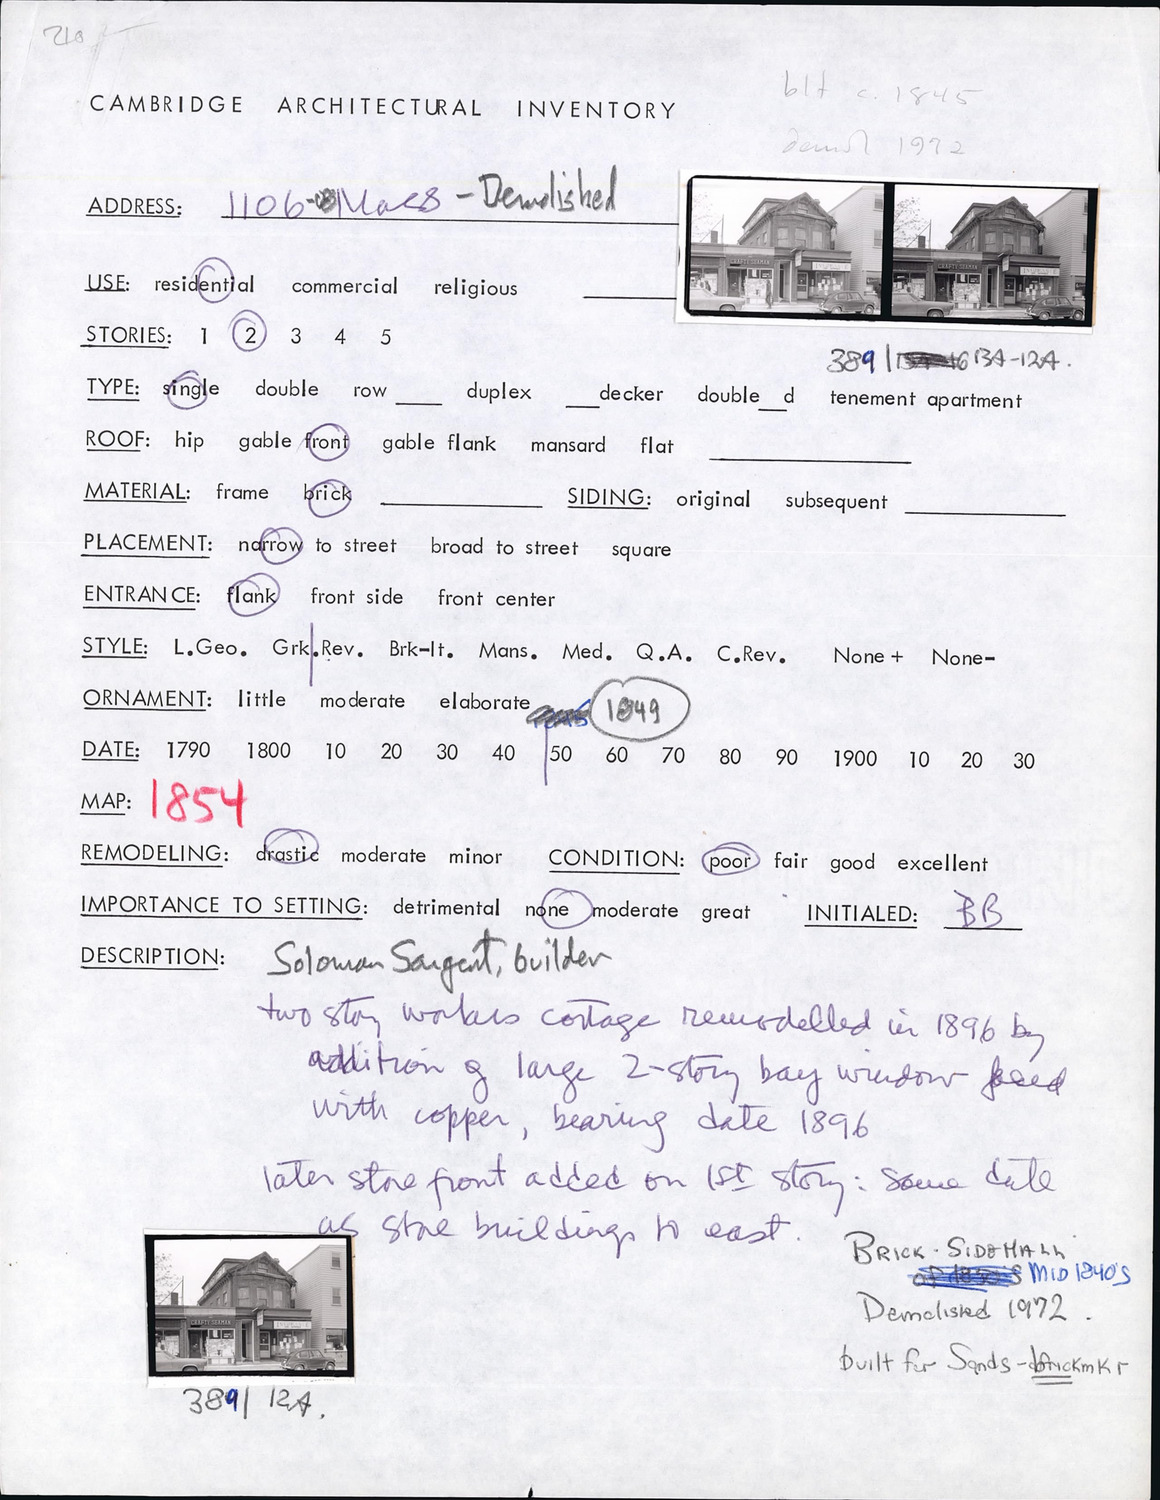 210
CAMBRIDGE ARCHITECTURAL INVENTORY
blt c. 1845
demol 1972
ADDRESS: 1106-08 Mass - Demolished
USE: residential commercial religious
STORIES: 1 2 3 4 5
389/ 13A-12A.
TYPE: single double row ____ duplex ___decker double__d tenement apartment
ROOF: hip gable front gable flank mansard flat
MATERIAL: frame brick SIDING: original subsequent
PLACEMENT: narrow to street broad to street square
ENTRANCE: flank front side front center
STYLE: L.Geo. Grk.Rev. Brk-It. Mans. Med. Q.A. C.Rev. None+ None-
ORNAMENT: little moderate elaborate 1849
DATE: 1790 1800 10 20 30 40 50 60 70 80 90 1900 10 20 30
MAP: 1854
REMODELING: drastic moderate minor CONDITION: poor fair good excellent
IMPORTANCE TO SETTING: detrimental none moderate great INITIALED: BB
DESCRIPTION: Soloman Sargent, builder
two story workers cottage remodelled in 1896 by
addition of large 2-story bay window faced
with copper, bearing date 1896
later store front added on 1st story: same date
as store buildings to east.
BRICK-SIDEHALL
MID 1840'S
Demolished 1972.
built for Sands-brickmkr
CRAFTY SEAMAN
389/ 12A.